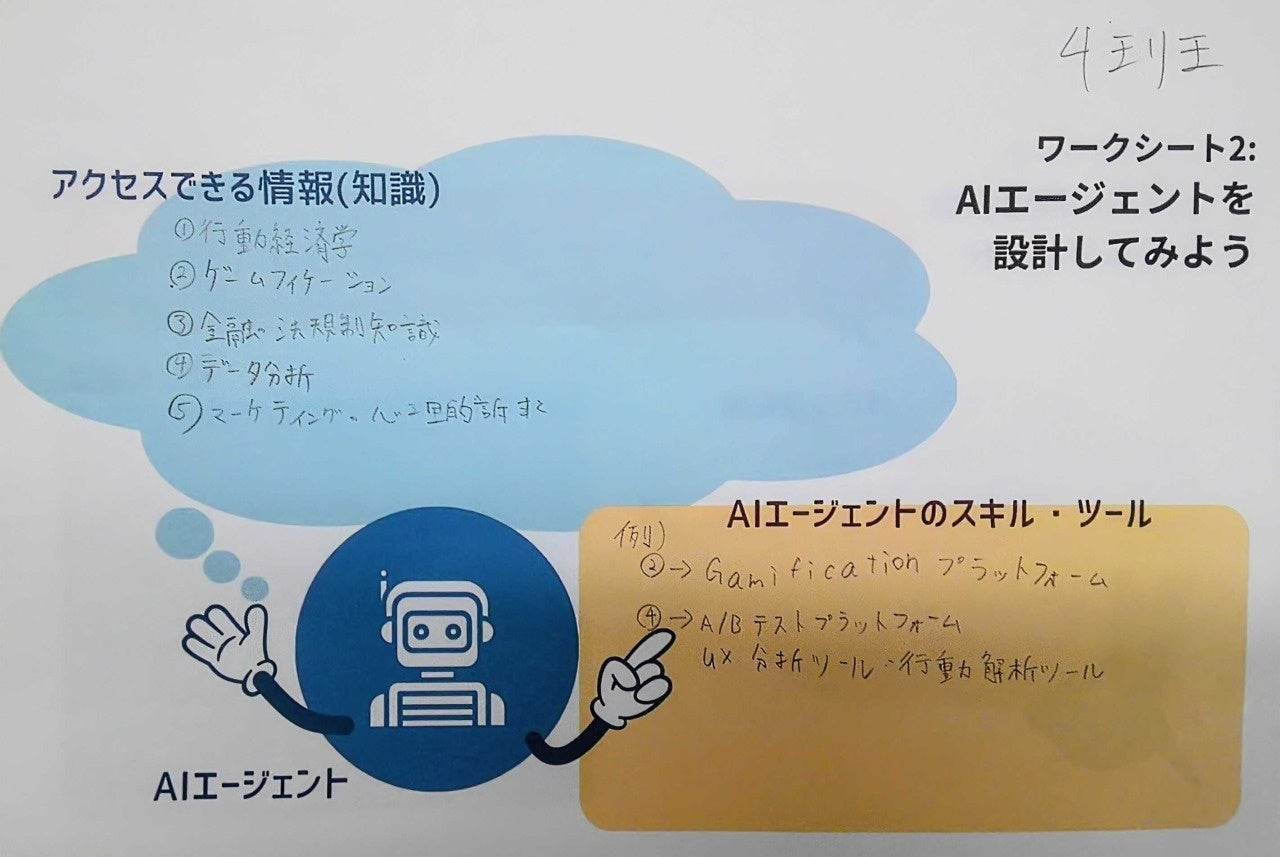 4班
ワークシート2:
AIエージェントを
設計してみよう
アクセスできる情報(知識)
①行動経済学
②ゲームフィケーション
③金融、法規制知識
④データ分析
⑤マーケティング、心理的訴すく
AIエージェントのスキル・ツール
例)
②→Gamificationプラットフォーム
④→A/Bテストプラットフォーム
UX分析ツール・行動解析ツール
AIエージェント